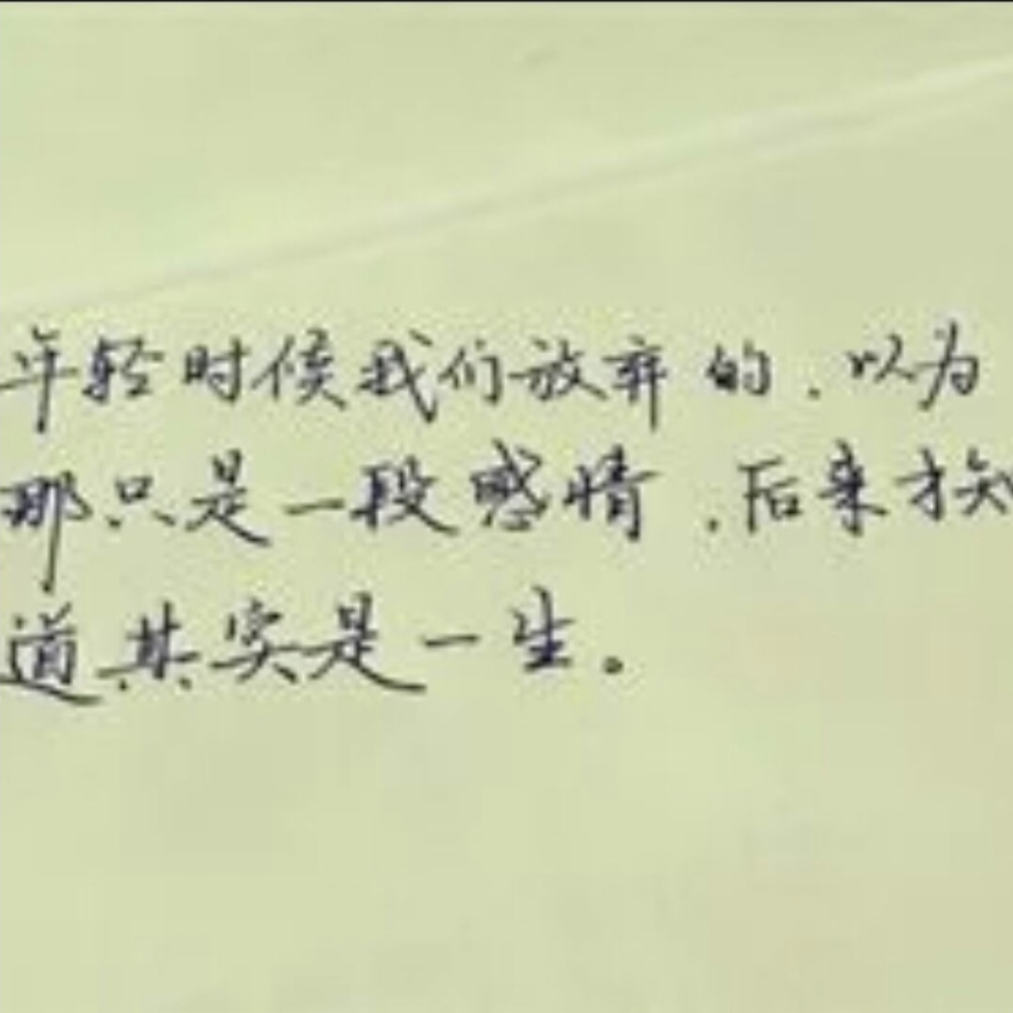 年轻时候我们放弃的.以为
那只是一段感情.后来才知
道其实是一生。